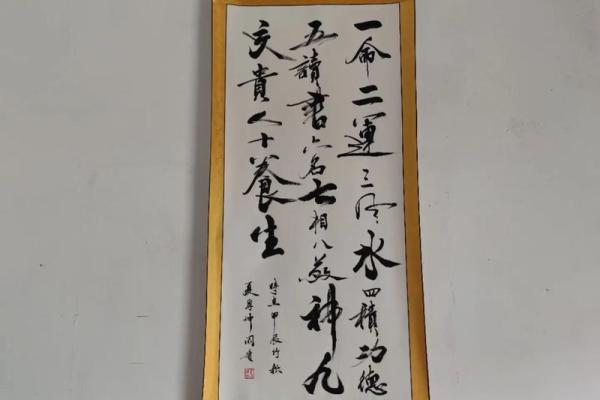 一命二運三风水四積功德
五讀書六名七相八敬神九
交貴人十養生
時在甲辰竹秋